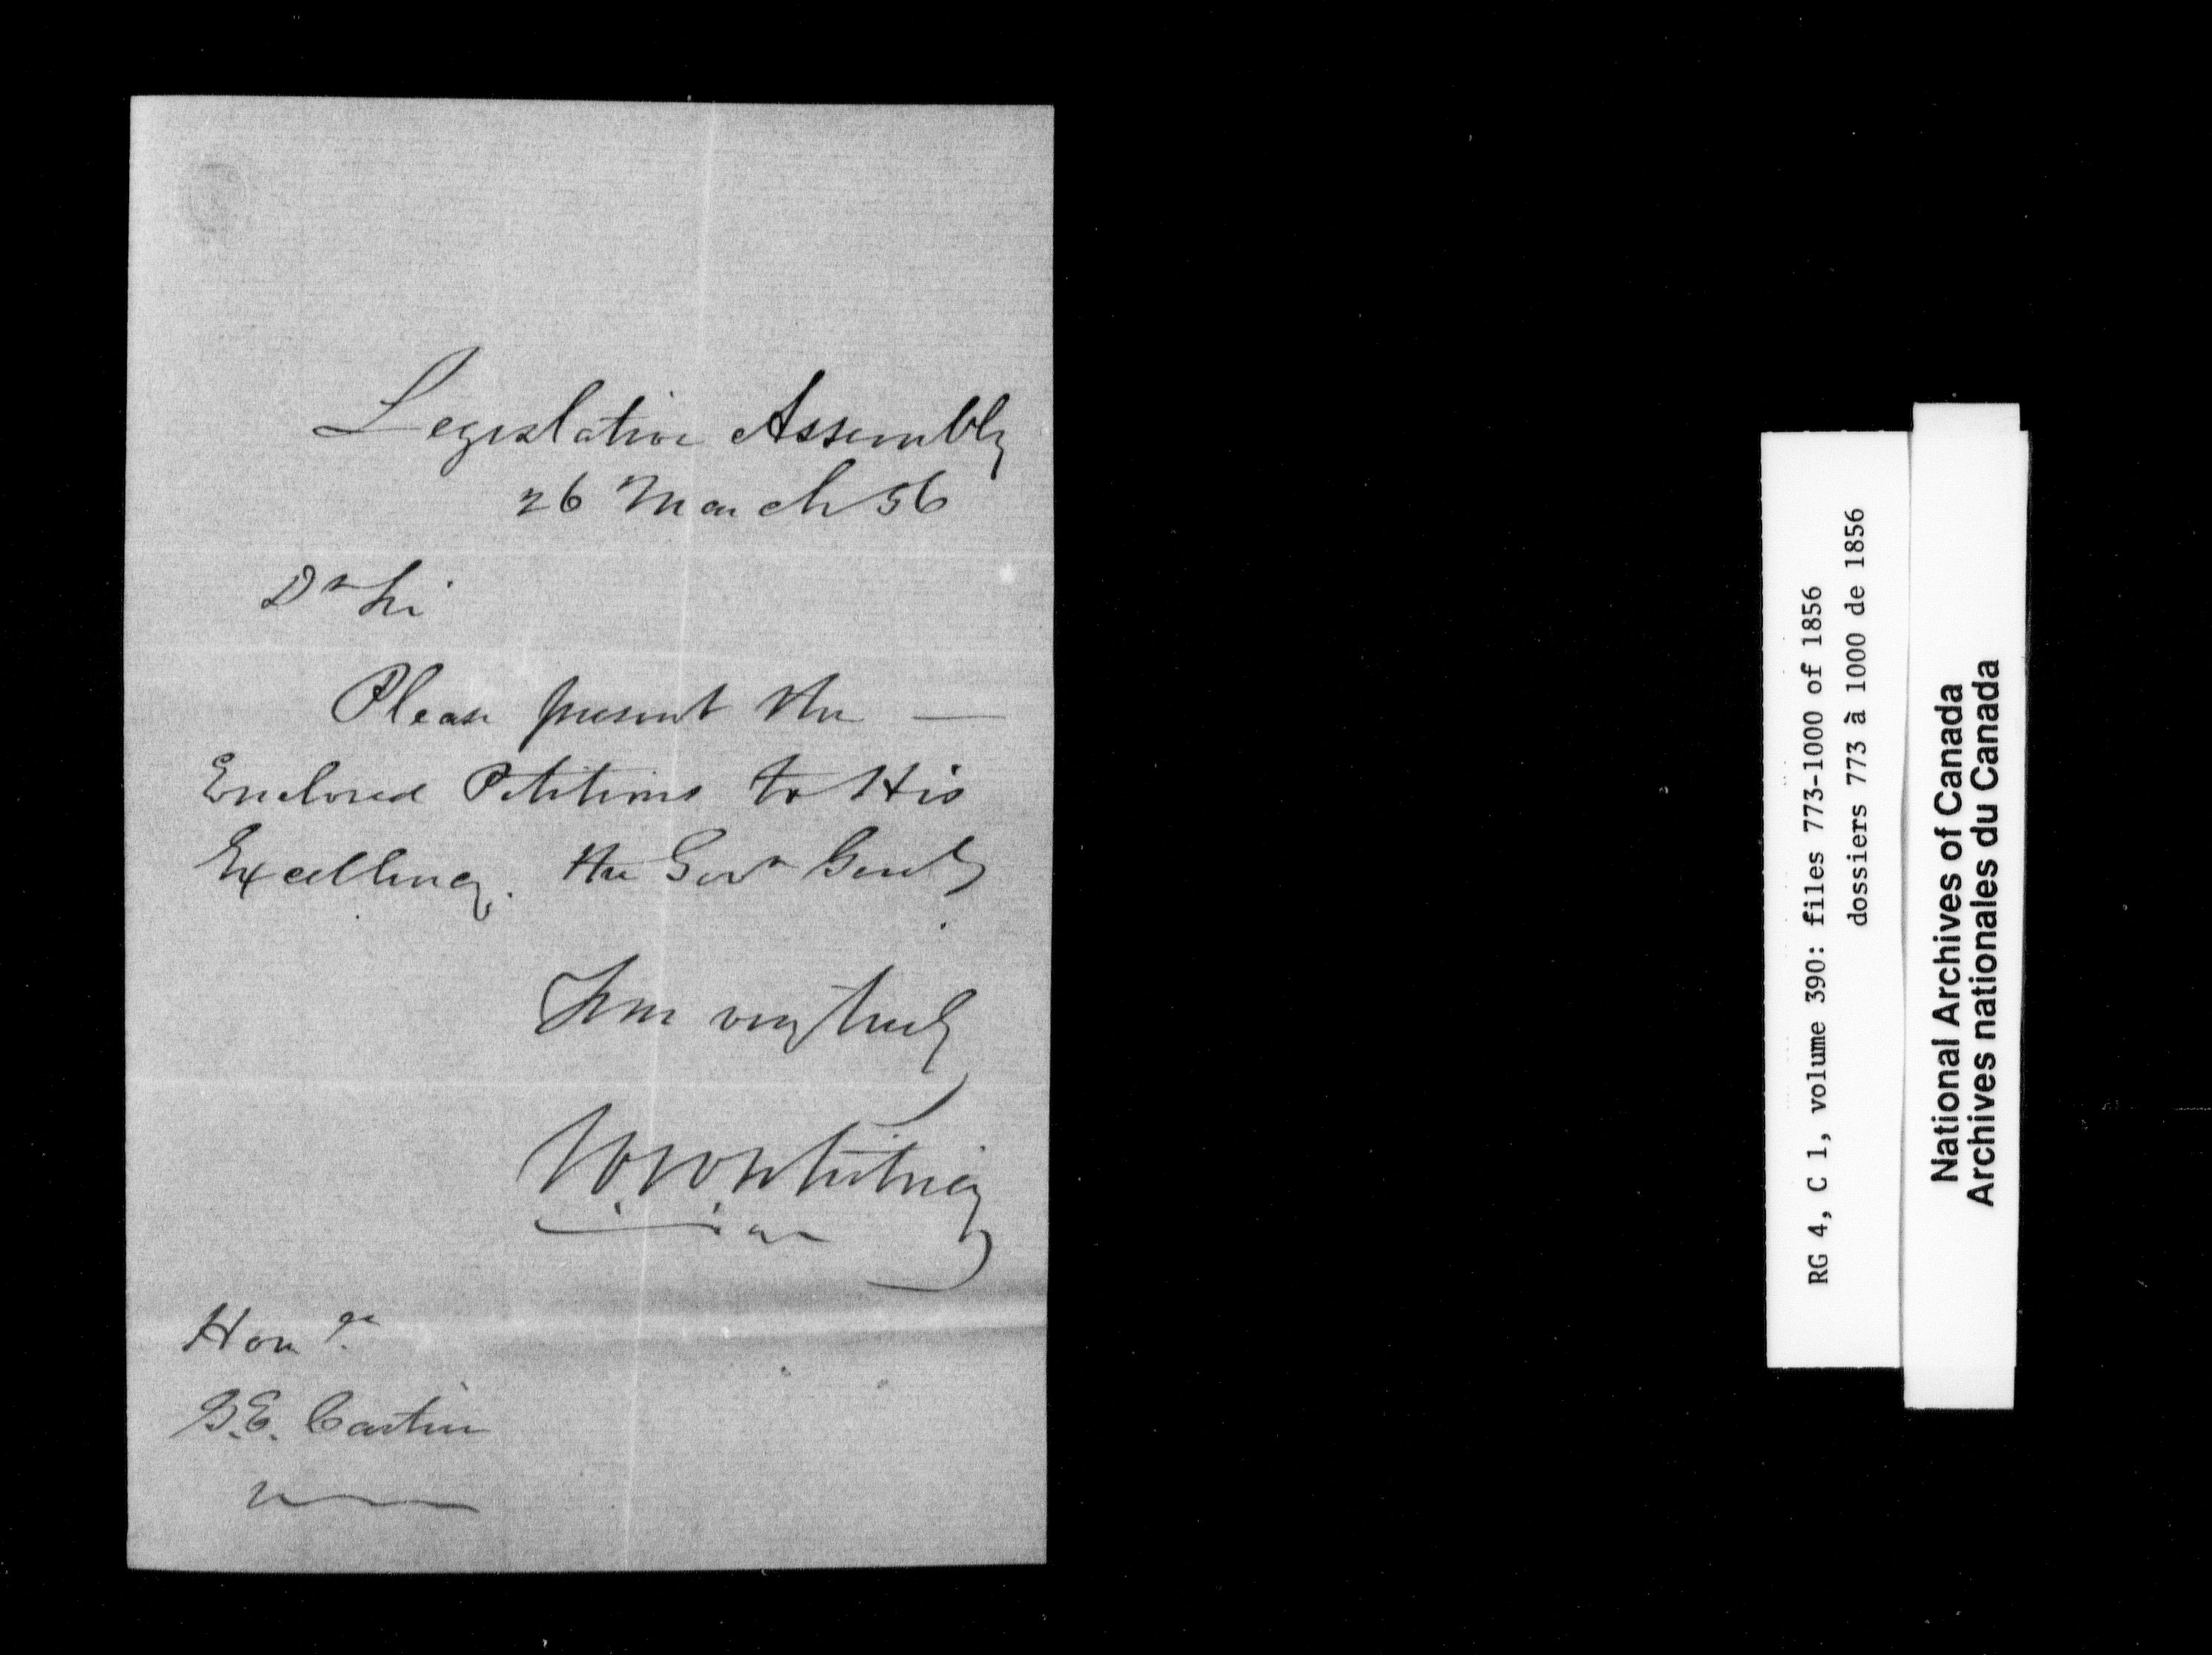 Legislative Assembly
26 March 56
Dr Sir
Please present the —
Enclosed Petitions to His
Excellency. the Govr Genl
Yrs very truly
Whitney
Honble
G.E. Cartier
RG 4, C 1, volume 390: files 773-1000 of 1856
dossiers 773 à 1000 de 1856
National Archives of Canada
Archives nationales du Canada